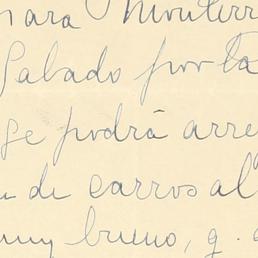 para Monterr
Sabado por la
se podrá arre
de carros al
muy bueno, q.